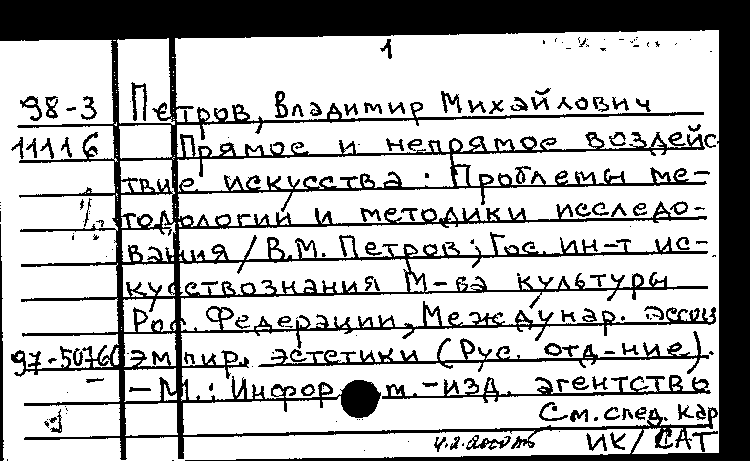 1
98-3 Петров, Владимир Михайлович
11116 Прямое и непрямое воздейс
твие искусства: Проблемы ме-
тодологии и методики исследо-
вания / В.М. Петров; Гос. ин-т ис-
кусствознания М-ва культуры
Рос. Федерации, Междунар. ассоц
97-50760 эмпир. эстетики (Рус. отд-ние).
– М.: Информ.-изд. агентствь
См. след. кар
ИК/САТ